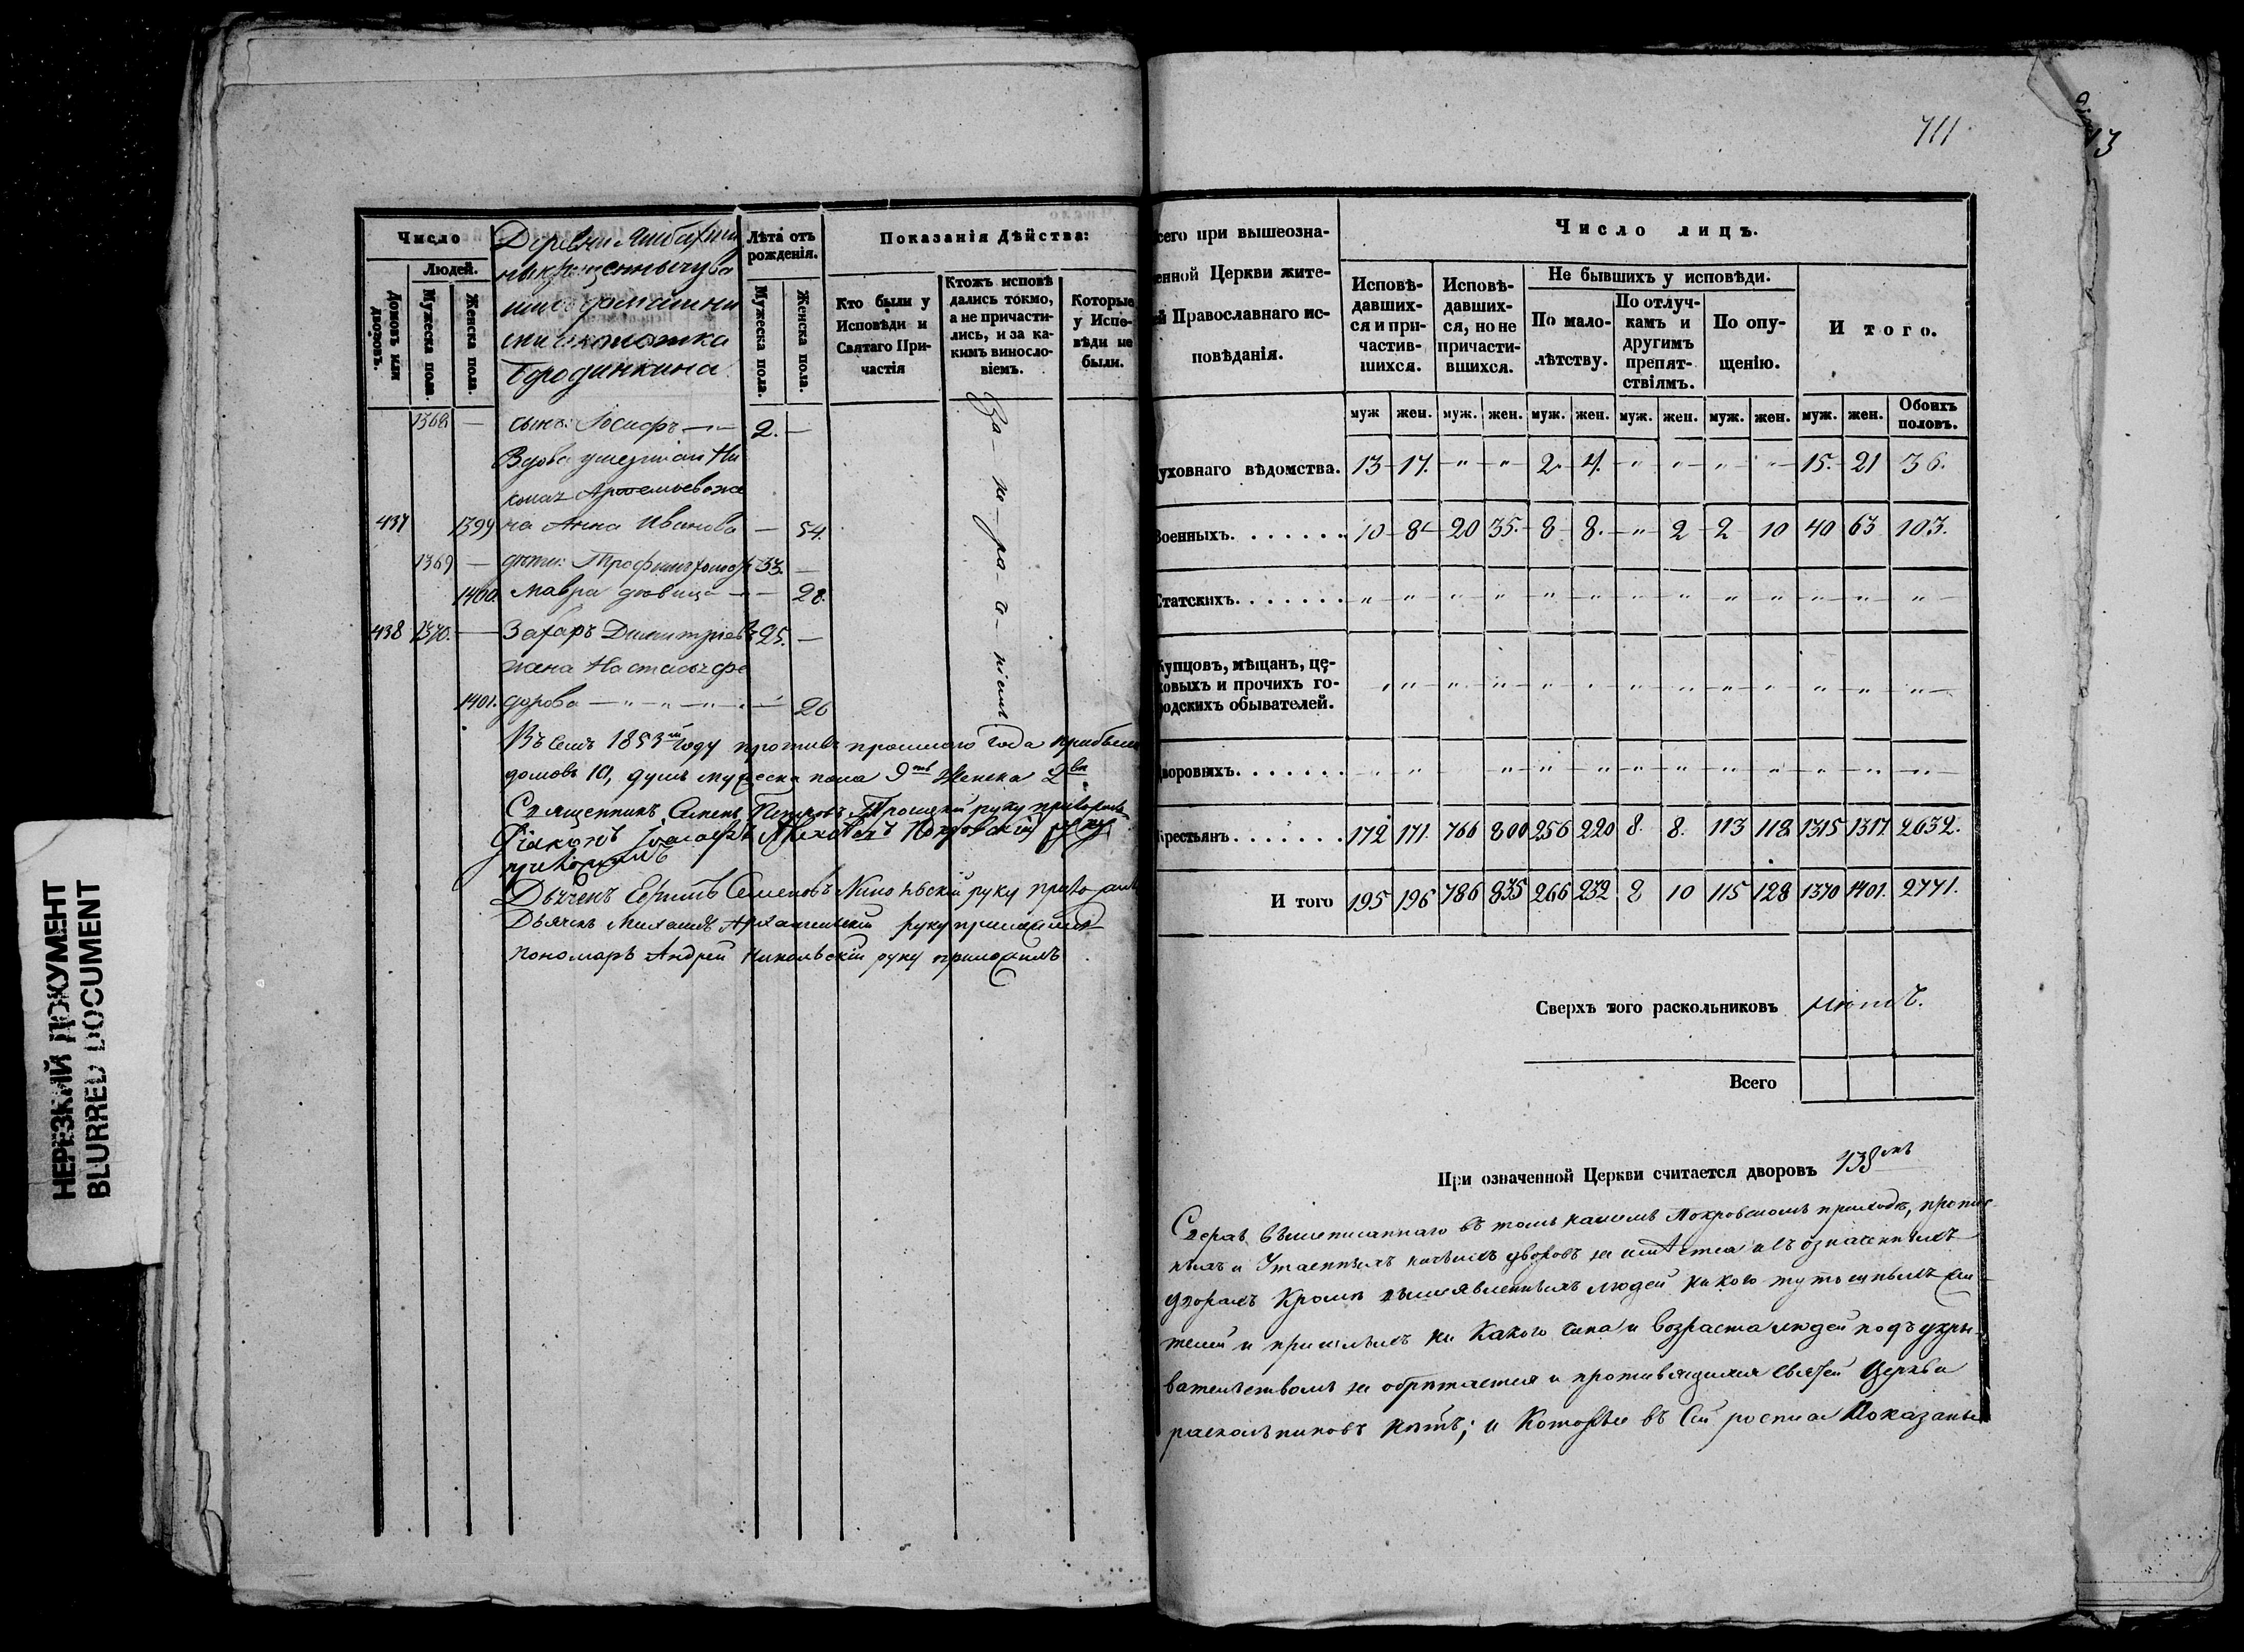 НЕРЕЗКИЙ ДОКУМЕНТ
BLURRED DOCUMENT
Число
Людей.
Домовъ или дворовъ.
Мужеска пола.
Женска пола.
Деревни
Лѣта отъ рожденія.
Мужеска пола.
Женска пола.
Показанія Дѣйства:
Кто были у Исповѣди и Святаго Причастія
Ктожъ исповѣдались токмо, а не причастились, и за какимъ винословіемъ.
Которые у Исповѣди не были.
1368 — сынъ: Іосифъ — 2. —
Вдова умершаго Ни
колая Артемьева же
437 1399 на Анна Иванова — 54.
1369 — дѣти: Трофимъ холостъ 33. —
1400. Мавра дѣвица — 28.
438 1370. — Захаръ Димитріевъ 25. —
жена Настасья Фе
1401. дорова — 26
Въ семъ 1853мъ году противъ прошлаго года прибыло
домовъ 10, душъ мужеска пола 9ть женска 2вѣ
Священникъ Симеонъ Петровъ Троицкій руку приложилъ
Діаконъ Покровскій руку
приложилъ
Дьячекъ Семеновъ руку приложилъ
Дьячекъ Михаилъ Архангельскій руку приложилъ
Пономарь Андрей Никольскій руку приложилъ
711
13
сего при вышеозна-
енной Церкви жите-
ей Православнаго ис-
повѣданія.
Число лицъ.
Исповѣдавших-ся и при-частив-шихся.
Исповѣ-давших-ся, но не причасти-вшихся.
Не бывшихъ у исповѣди.
По мало-лѣтству.
По отлуч-камъ и другимъ препят-ствіямъ.
По опу-щенію.
И того.
муж жен. муж. жен. муж. жен. муж. жен. муж. жен. муж. жен. Обоихъ половъ.
уховнаго вѣдомства. 13 17. " " 2. 4. " " " " 15. 21 36.
Военныхъ. 10 8 20 35. 8 8. " 2 2 10 40 63 103.
Статскихъ. " " " " " " " " " " " " "
Купцовъ, мѣщанъ, це-
ховыхъ и прочихъ го-
родскихъ обывателей. " " " " " " " " " " " " "
Дворовыхъ. " " " " " " " " " " " "
Крестьянъ. 172 171. 766 800 256 220 8. 8. 113 118 1315 1317. 2632.
И того 195 196 786 835 266 232 8 10 115 128 1370 1401. 2771.
Сверхъ того раскольниковъ нѣтъ.
Всего
При означенной Церкви считается дворовъ 438мь
Сверхъ вышеписаннаго въ томъ нашемъ Покровскомъ приходѣ, пропис-
ныхъ и Утаенныхъ никакихъ дворовъ не имѣется и въ означенныхъ
дворахъ Кромѣ вышеявленныхъ людей никого тутошныхъ жи-
телей и пришлыхъ ни Какого чина и возраста людей подъ укры-
вательствомъ не обрѣтается и противящихся святей Церкви
раскольниковъ нѣтъ; и Которые въ Сей росписи Показаны